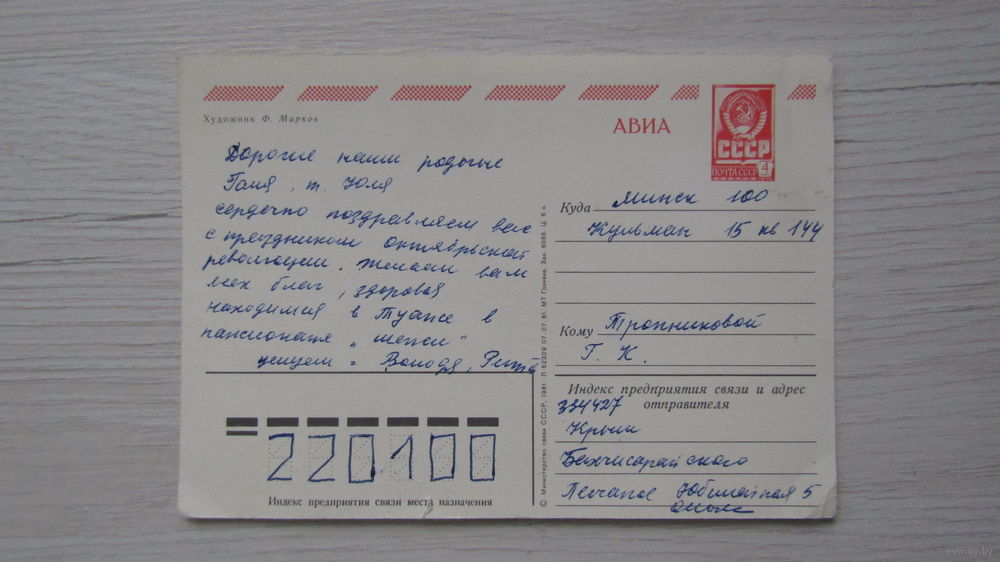 Художник Ф. Марков
АВИА
СССР
ПОЧТА СССР 4
Дорогие наши родные
Галя, т. Юля
сердечно поздравляем вас
с праздником октябрьской
революции. Желаем вам
всех благ, здоровья
находимся в Туапсе в
пансионате "
целуем = Володя, Рита
Куда Минск 100
Кульман 15 кв 144
Кому Тропниковой
Г. К.
Индекс предприятия связи и адрес
отправителя
334427
Крым
Бахчисарайского
Песчаное Юбилейная 5
220100
Индекс предприятия связи места назначения
© Министерство связи СССР, 1981 Л 62309 07.07.81. МТ Гознака. Зак. 6085. Ц. 6 к.
www.ay.by